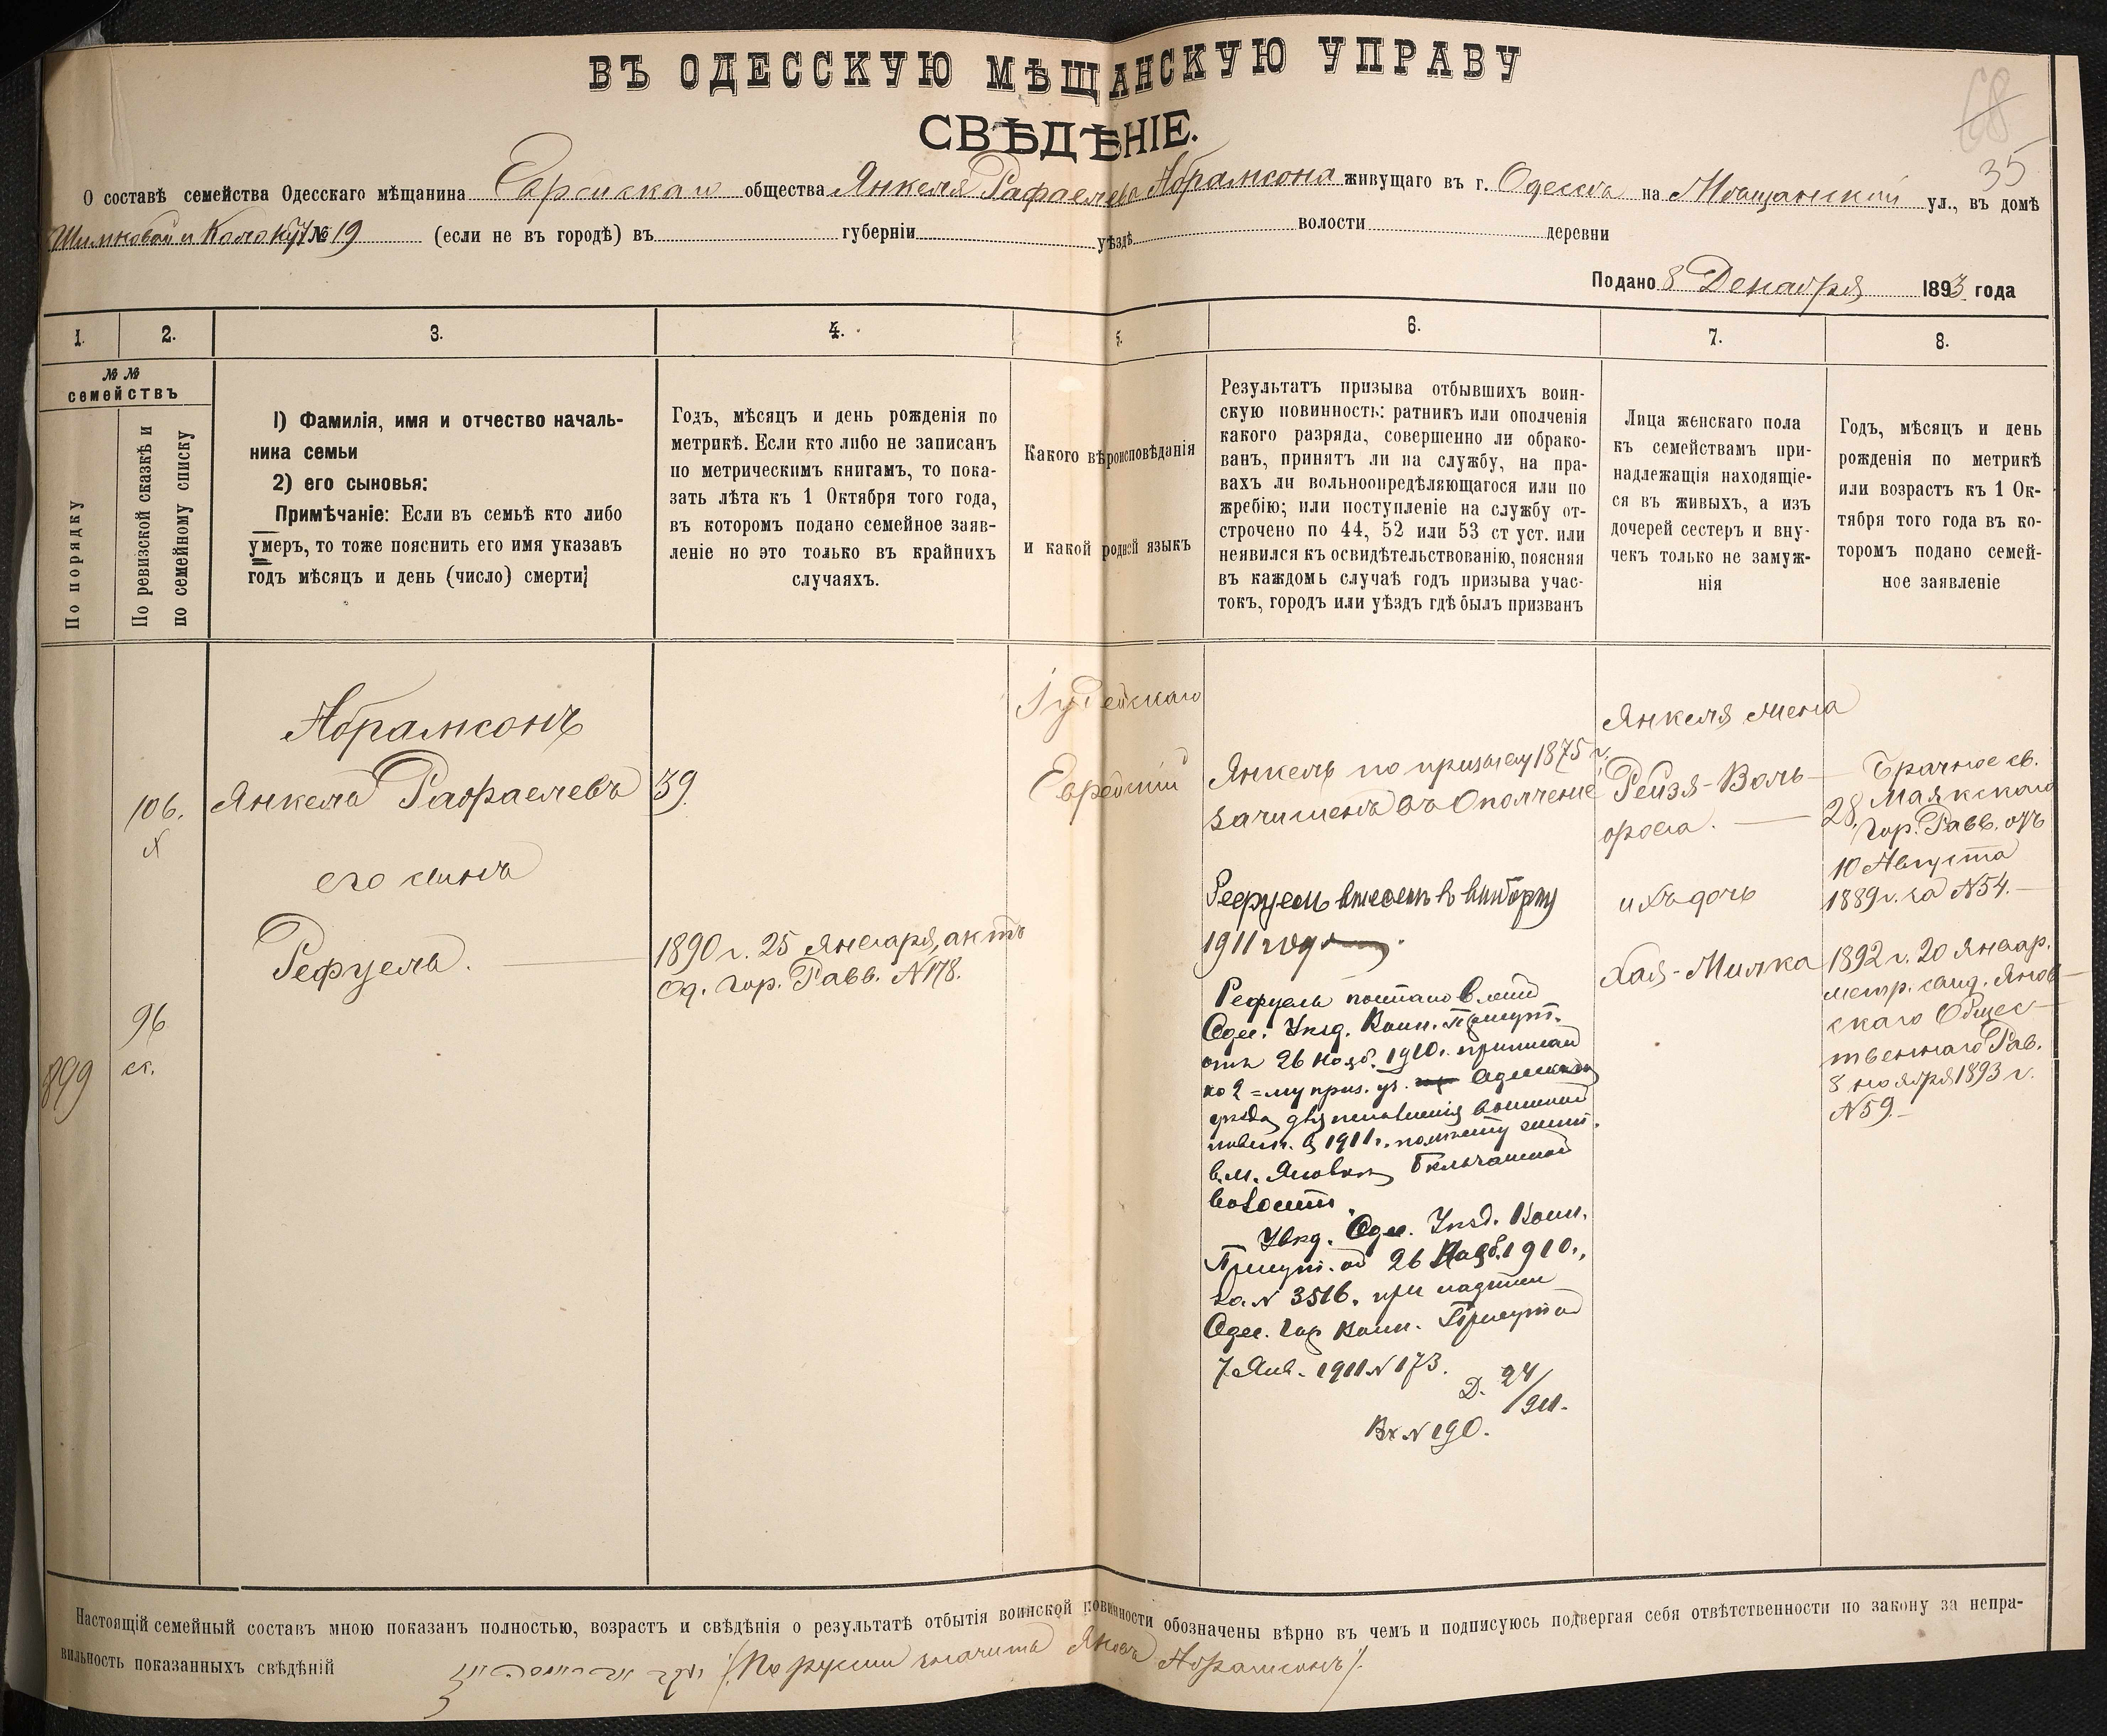 ВЪ ОДЕССКУЮ МѢЩАНСКУЮ УПРАВУ
СВѢДѢНІЕ.
68
35
О составѣ семейства Одесскаго мѣщанина Еврейскаго общества Янкеля Рафаелева Абрамсона живущаго въ г. Одесса на Мѣщанской ул., въ домѣ
№ 19 (если не въ городѣ) въ губерніи уѣздѣ волости деревни
Подано 8 Декабря 1893 года
1. 2. 3. 4. 5. 6. 7. 8.
№№ семействъ
По порядку
По ревизской сказкѣ и по семейному списку
1) Фамилія, имя и отчество началь-
ника семьи
2) его сыновья:
Примѣчаніе: Если въ семьѣ кто либо
умеръ, то тоже пояснить его имя указавъ
годъ мѣсяцъ и день (число) смерти;
Годъ, мѣсяцъ и день рожденія по
метрикѣ. Если кто либо не записанъ
по метрическимъ книгамъ, то пока-
зать лѣта къ 1 Октября того года,
въ которомъ подано семейное заяв-
леніе но это только въ крайнихъ
случаяхъ.
Какого вѣроисповѣданія
и какой родной языкъ
Результатъ призыва отбывшихъ воин-
скую повинность: ратникъ или ополченія
какого разряда, совершенно ли обрако-
ванъ, принятъ ли на службу, на пра-
вахъ ли вольноопредѣляющагося или по
жребію; или поступленіе на службу от-
строчено по 44, 52 или 53 ст уст. или
неявился къ освидѣтельствованію, поясняя
въ каждомъ случаѣ годъ призыва учас-
токъ, городъ или уѣздъ гдѣ былъ призванъ
Лица женскаго пола
къ семействамъ при-
надлежащія находящіе-
ся въ живыхъ, а изъ
дочерей сестеръ и вну-
чекъ только не замуж-
нія
Годъ, мѣсяцъ и день
рожденія по метрикѣ
или возрастъ къ 1 Ок-
тября того года въ ко-
торомъ подано семей-
ное заявленіе
899
106.
96
ск.
Абрамсонъ
Янкель Рафаелевъ
его сынъ
Рефуель.
39
1890 г. 25 Января, актъ
Од. Гор. Равв. №178.
Іудейскаго
Еврейскій
Янкель по призыву 1875 г.
зачисленъ въ Ополченіе
Рефуель внесенъ в выборку
1911 года.
Рефуель постановленій
Одес. Уѣзд. Воин. Присут.
отъ 26 Нояб. 1910 г. приписан
ко 2=му приз. уч. Одесскаго
уѣзда для исполненія воинской
повин. в 1911 г. по
в м. Яновкѣ Бельчанской
волости.
Увѣд. Одес. Уѣзд. Воин.
Присут. от 26 Нояб. 1910 г.,
за № 3516, при надписи
Одес. Гор Воин. Присут от
7 Янв. 1911 № 173.
Д. 24/911.
Вх № 190.
Янкеля жена
Рейзя-Воль-
фова.
ихъ дочь
Хая-Милка
28.
Брачное св.
Маякскаго
Гор. Равв. отъ
10 Августа
1889 г. за №54.
1892 г. 20 Январ.
метр. свид. Янов-
скаго Общес-
твеннаго Рав.
8 ноября 1893 г.
№59.
Настоящій семейный составъ мною показанъ полностью, возрастъ и свѣдѣнія о результатѣ отбытія воинской повинности обозначены вѣрно въ чемъ и подписуюсь подвергая себя отвѣтственности по закону за непра-
вильность показанныхъ свѣдѣній (По русски значитъ Янкель Абрамсонъ).